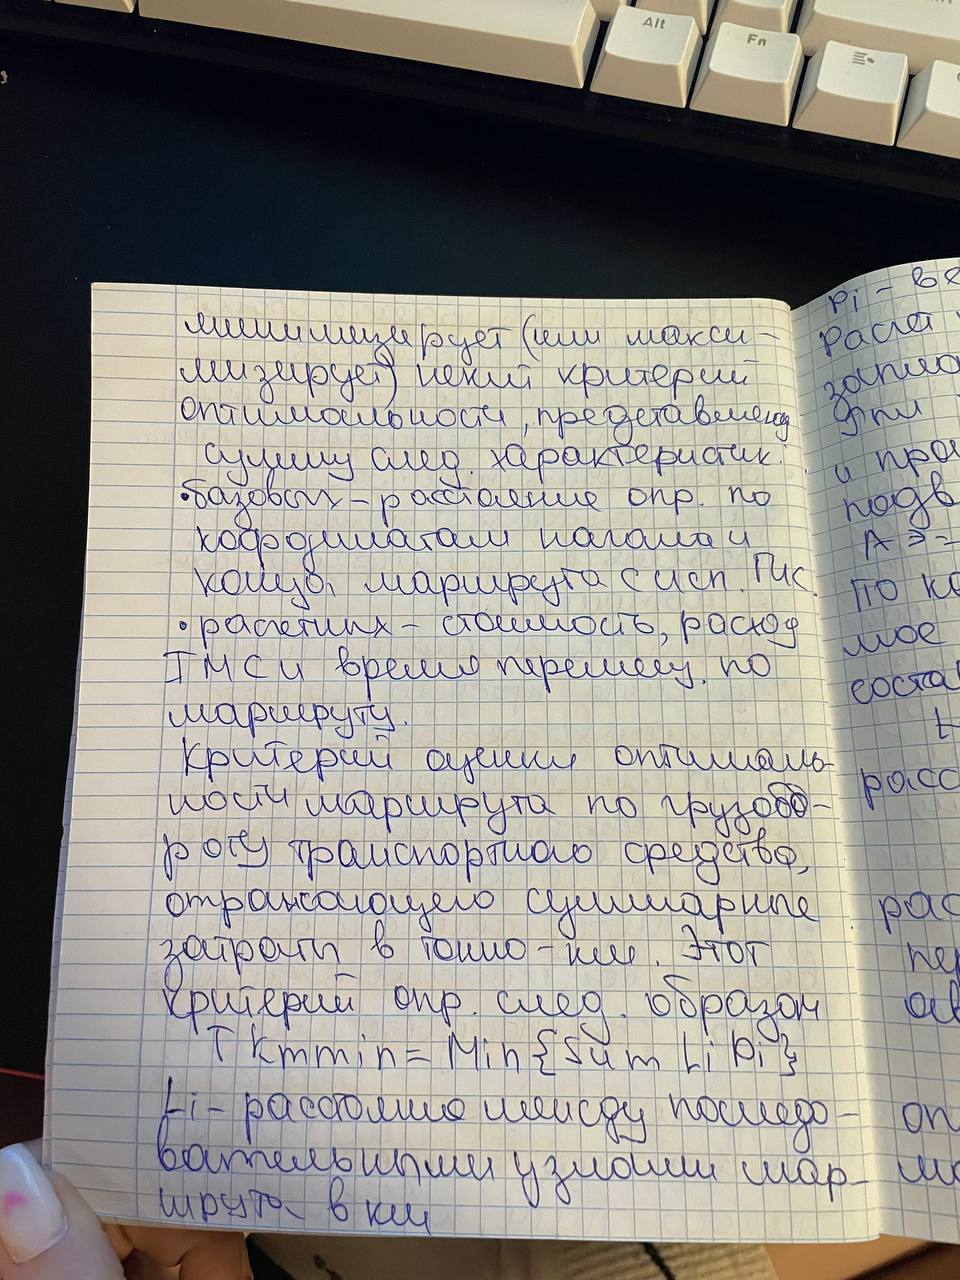 Alt
Fn
минимизирует (или макси-
мизирует) некий критерий
оптимальности, представленод
сумму след. характеристик:
•базовых – расстояние опр. по
координатам начала и
конца маршрута с исп. Гис.
•расчетных – стоимость, расход
ГМС и время перемещ. по
маршруту.
Критерий оценки оптималь-
ности маршрута по грузообо-
роту транспортного средства,
отражающего суммарные
затраты в тонно-км. Этот
критерий опр. след. образом
TKmmin = Min{Sum Li Pi}
Li – расстояние между последо-
вательными узлами мар-
шрута в км
Pi – ве
расст
Для
и про
подв
A Э =
по ко
мое
соста
t
расс
рас
пе
ав
оп